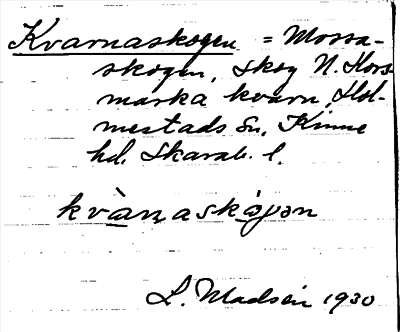 Kvarnaskogen = Mossa-
skogen, skog N. Hors-
marka kvarn, Hol-
mestads sn, Kinne
hd. Skarab. l.
kvànaskójən
L. Madsén 1930